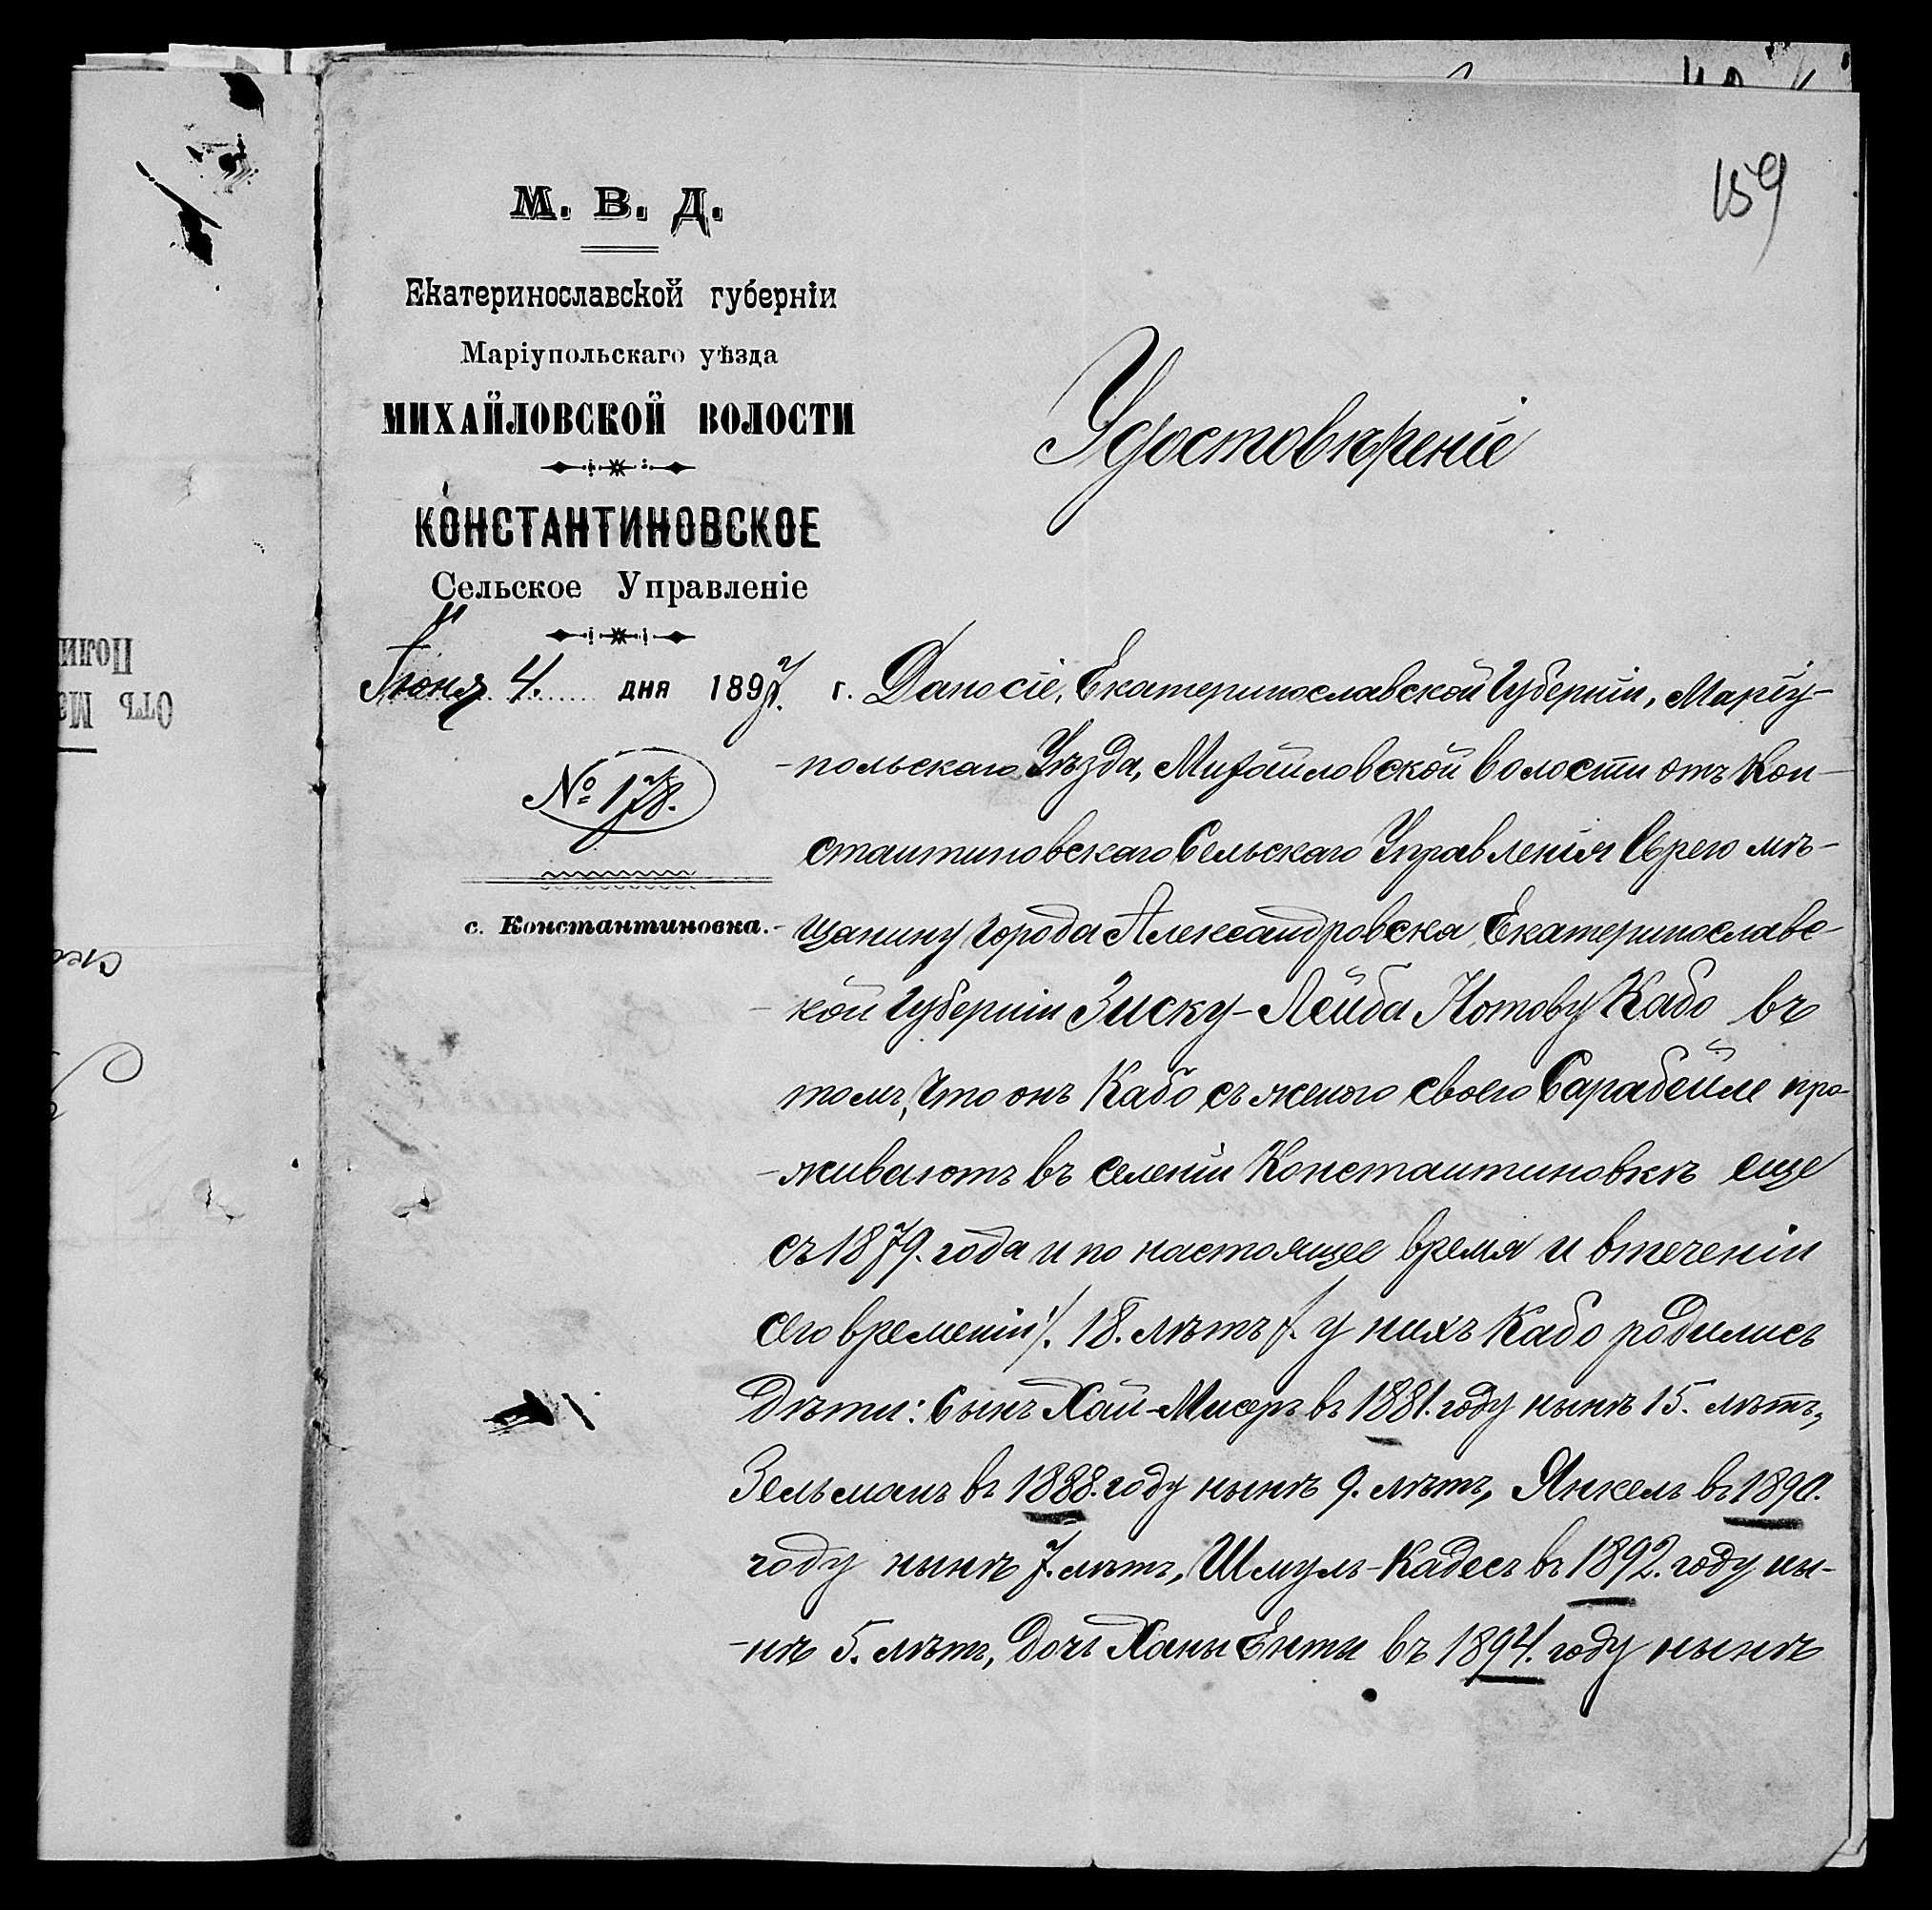 159
М. В. Д.
Екатеринославской губерніи
Маріупольскаго уѣзда
МИХАЙЛОВСКОЙ ВОЛОСТИ
КОНСТАНТИНОВСКОЕ
Сельское Управленіе
Іюня 4. дня 1897 г.
№ 178.
с. Константиновка.
Удостовѣреніе
Дано сіе, Екатеринославской Губерніи, Маріу-
-польскаго Уѣзда, Михайловской волости отъ Кон-
стантиновскаго Сельскаго Управленія Еврею мѣ-
щанину города Александровска Екатеринославс-
-кой Губерніи Зиску-Лейба Нотову Кабо въ
томъ, что онъ Кабо съ женою своею Сарабейле про-
-живаютъ въ селеніи Константиновкѣ еще
съ 1879. года и по настоящее время и втеченіи
сего временіи /. 18. лѣтъ /. у нихъ Кабо родились
Дѣти: Сынъ Хай-Мисеръ въ 1881. году нынѣ 15. лѣтъ,
Зельманъ въ 1888. году нынѣ 9. лѣтъ, Янкель въ 1890.
году нынѣ 7. лѣтъ, Шмуль-Кадесъ въ 1892. году ны-
-нѣ 5. лѣтъ, Дочь Ханы Енты въ 1894. году нынѣ